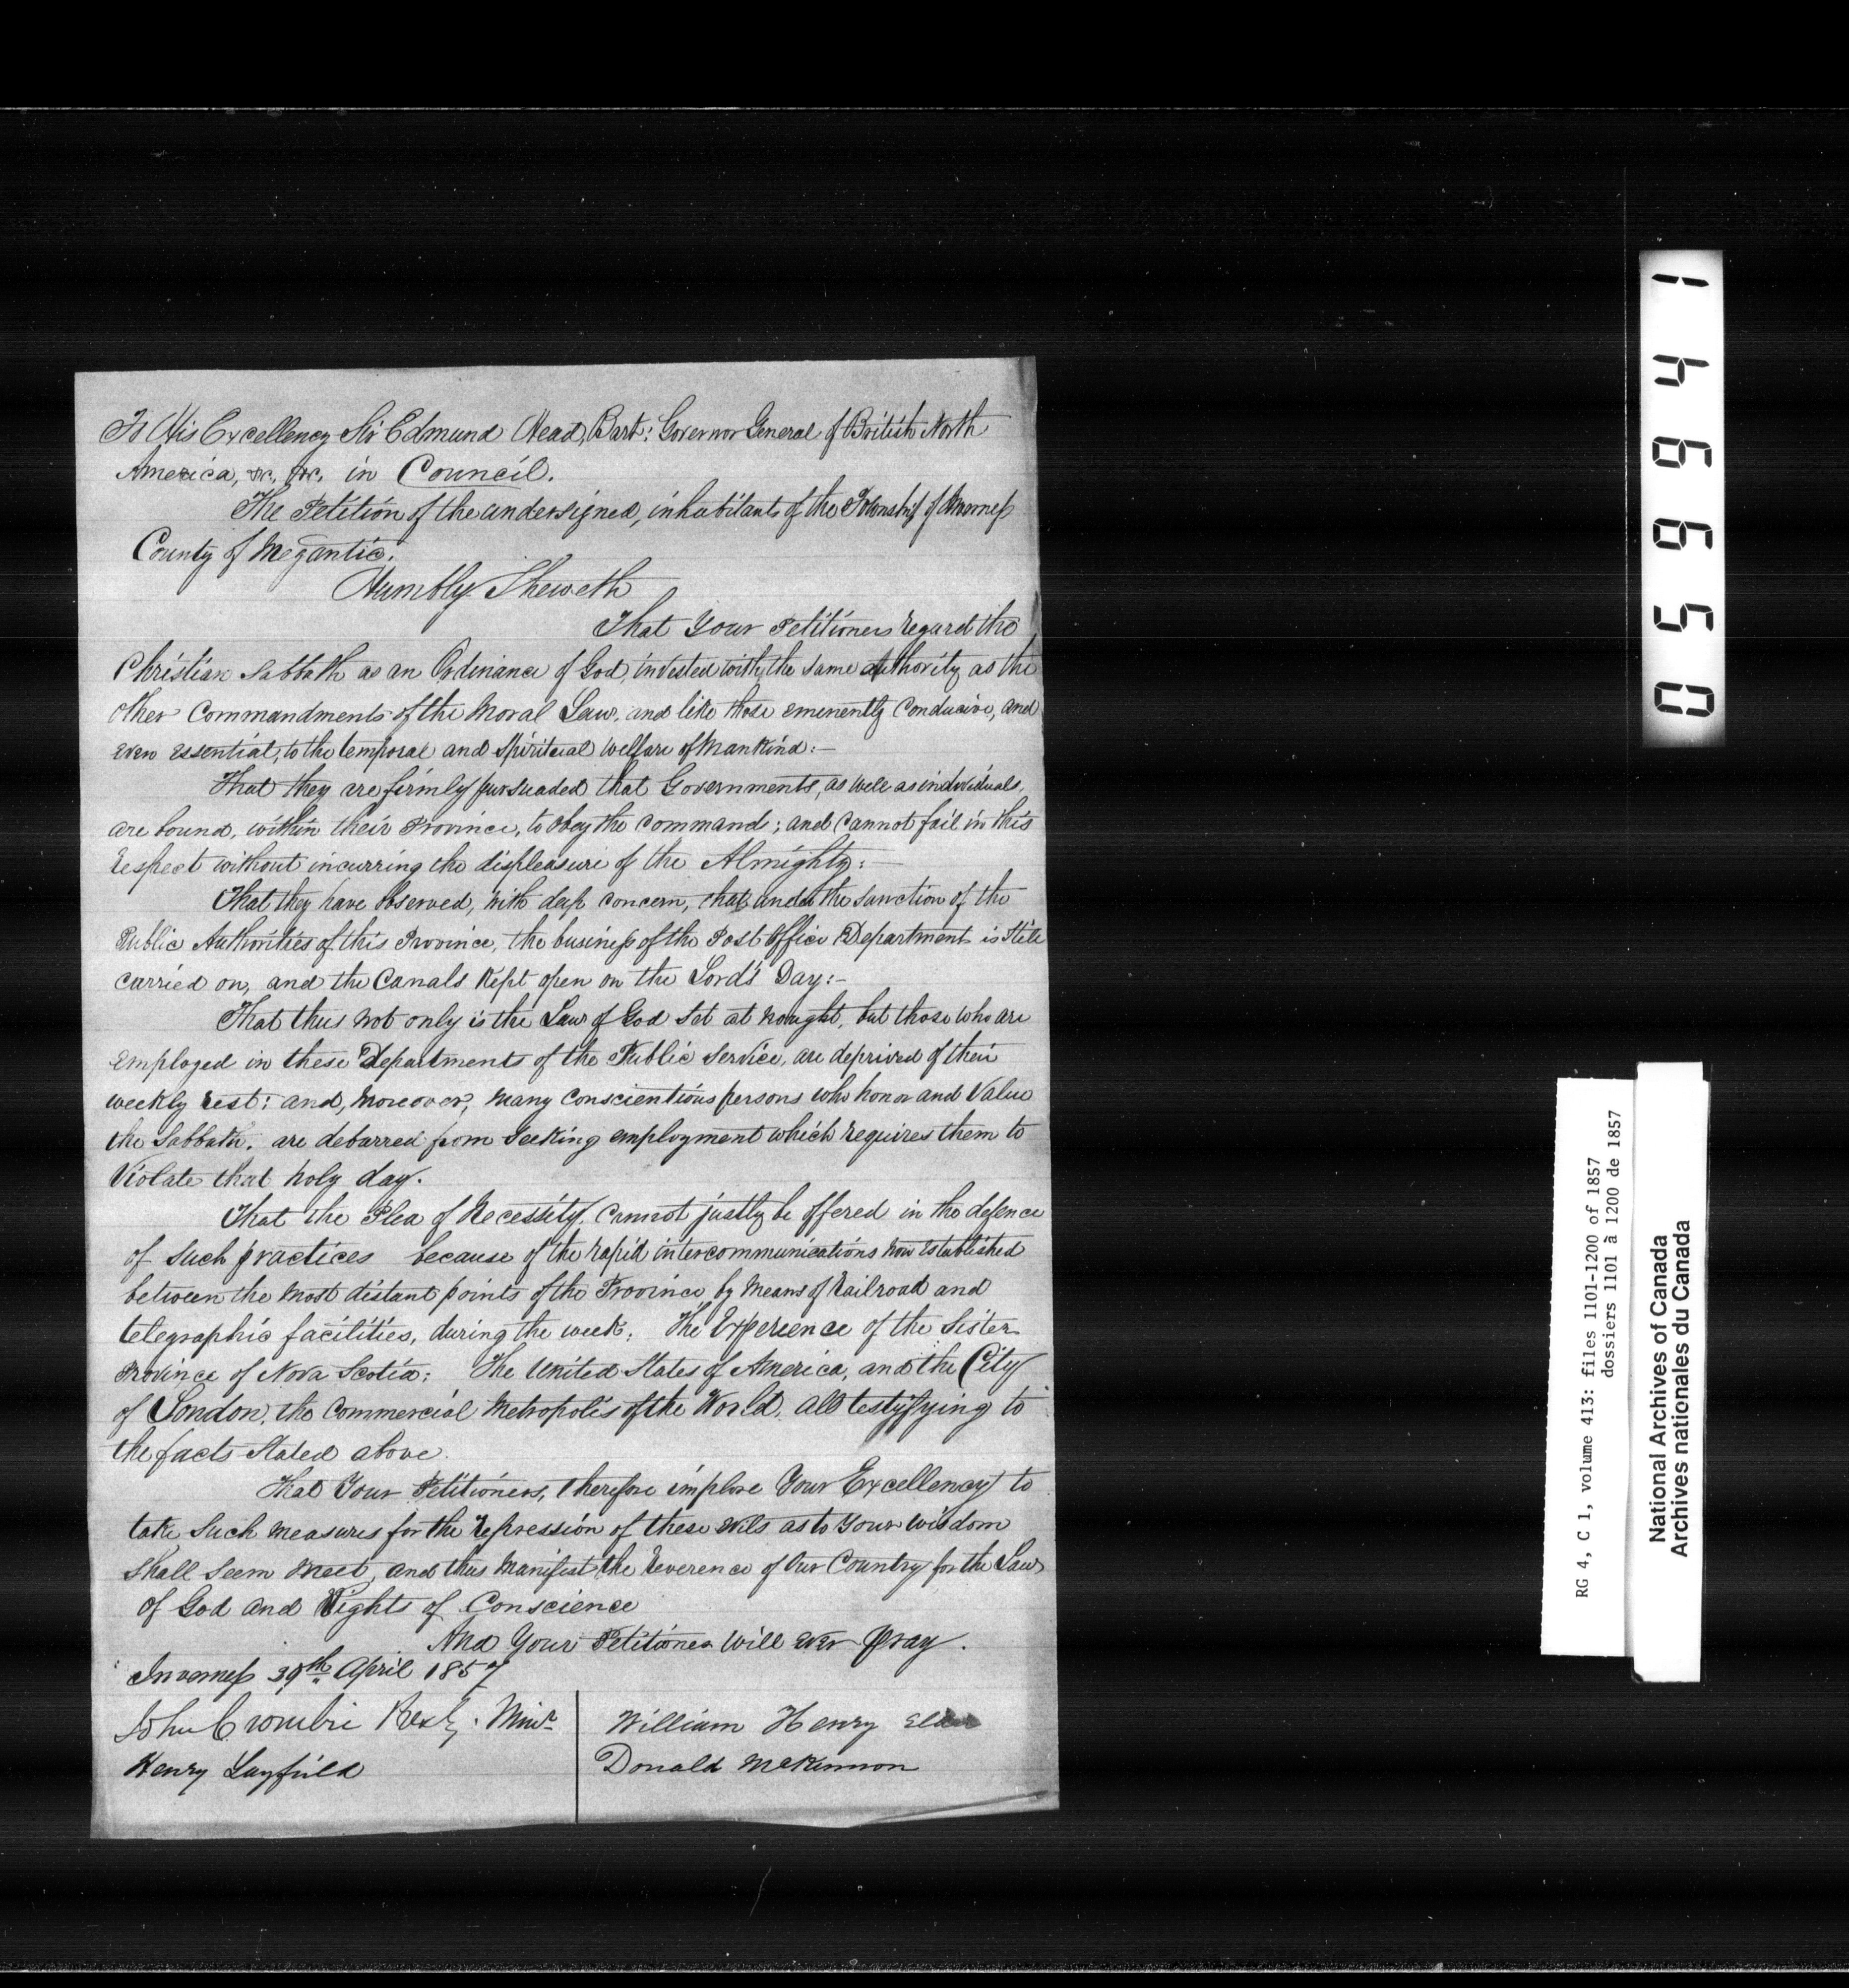 To His Excellency Sir Edmund Head, Bart: Governor General of British North
America, &c, &c, in Council.
The Petition of the undersigned, inhabitants of the Township of Inverness
County of Megantic.
Humbly Sheweth
That Your Petitioners regard the
Christian Sabbath as an Ordinance of God, invested with the same authority as the
other Commandments of the Moral Law, and like those eminently Conducive, and
even essential, to the temporal and Spiritual welfare of Mankind:—
That they are firmly pursuaded that Governments, as well as individuals,
are bound, within their Province, to obey the command; and cannot fail in this
respect without incurring the displeasure of the Almighty:—
That they have observed, with deep concern, that under the sanction of the
Public Authorities of this Province, the business of the Post Office Department is still
carried on, and the Canals kept open on the Lord's Day:-
That thus not only is the Law of God set at nought, but those who are
employed in these Departments of the Public Service, are deprived of their
weekly rest: and, moreover, many conscientious persons who honor and value
the Sabbath, are debarred from seeking employment which requires them to
Violate that holy day.
That the Plea of Necessity cannot justly be offered in the defence
of such practices because of the rapid intercommunications now established
between the most distant points of the Province by means of railroad and
telegraphic facilities, during the week. The Experience of the Sister
Province of Nova Scotia: The United States of America, and the City
of London, the Commercial Metropolis of the World, all testyfying to
the facts stated above.
That Your Petitioners, therefore implore Your Excellency to
take such measures for the repression of these evils as to Your wisdom
shall seem meet, and thus manifest the reverence of Our Country for the Law
of God and Rights of Conscience
And Your Petitioners will ever Pray.
Inverness 30th April 1857
John Crombie Presby. Minr
Henry Layfield
William Henry
Donald McKinnon
059941
RG 4, C 1, volume 413: files 1101-1200 of 1857
dossiers 1101 à 1200 de 1857
National Archives of Canada
Archives nationales du Canada